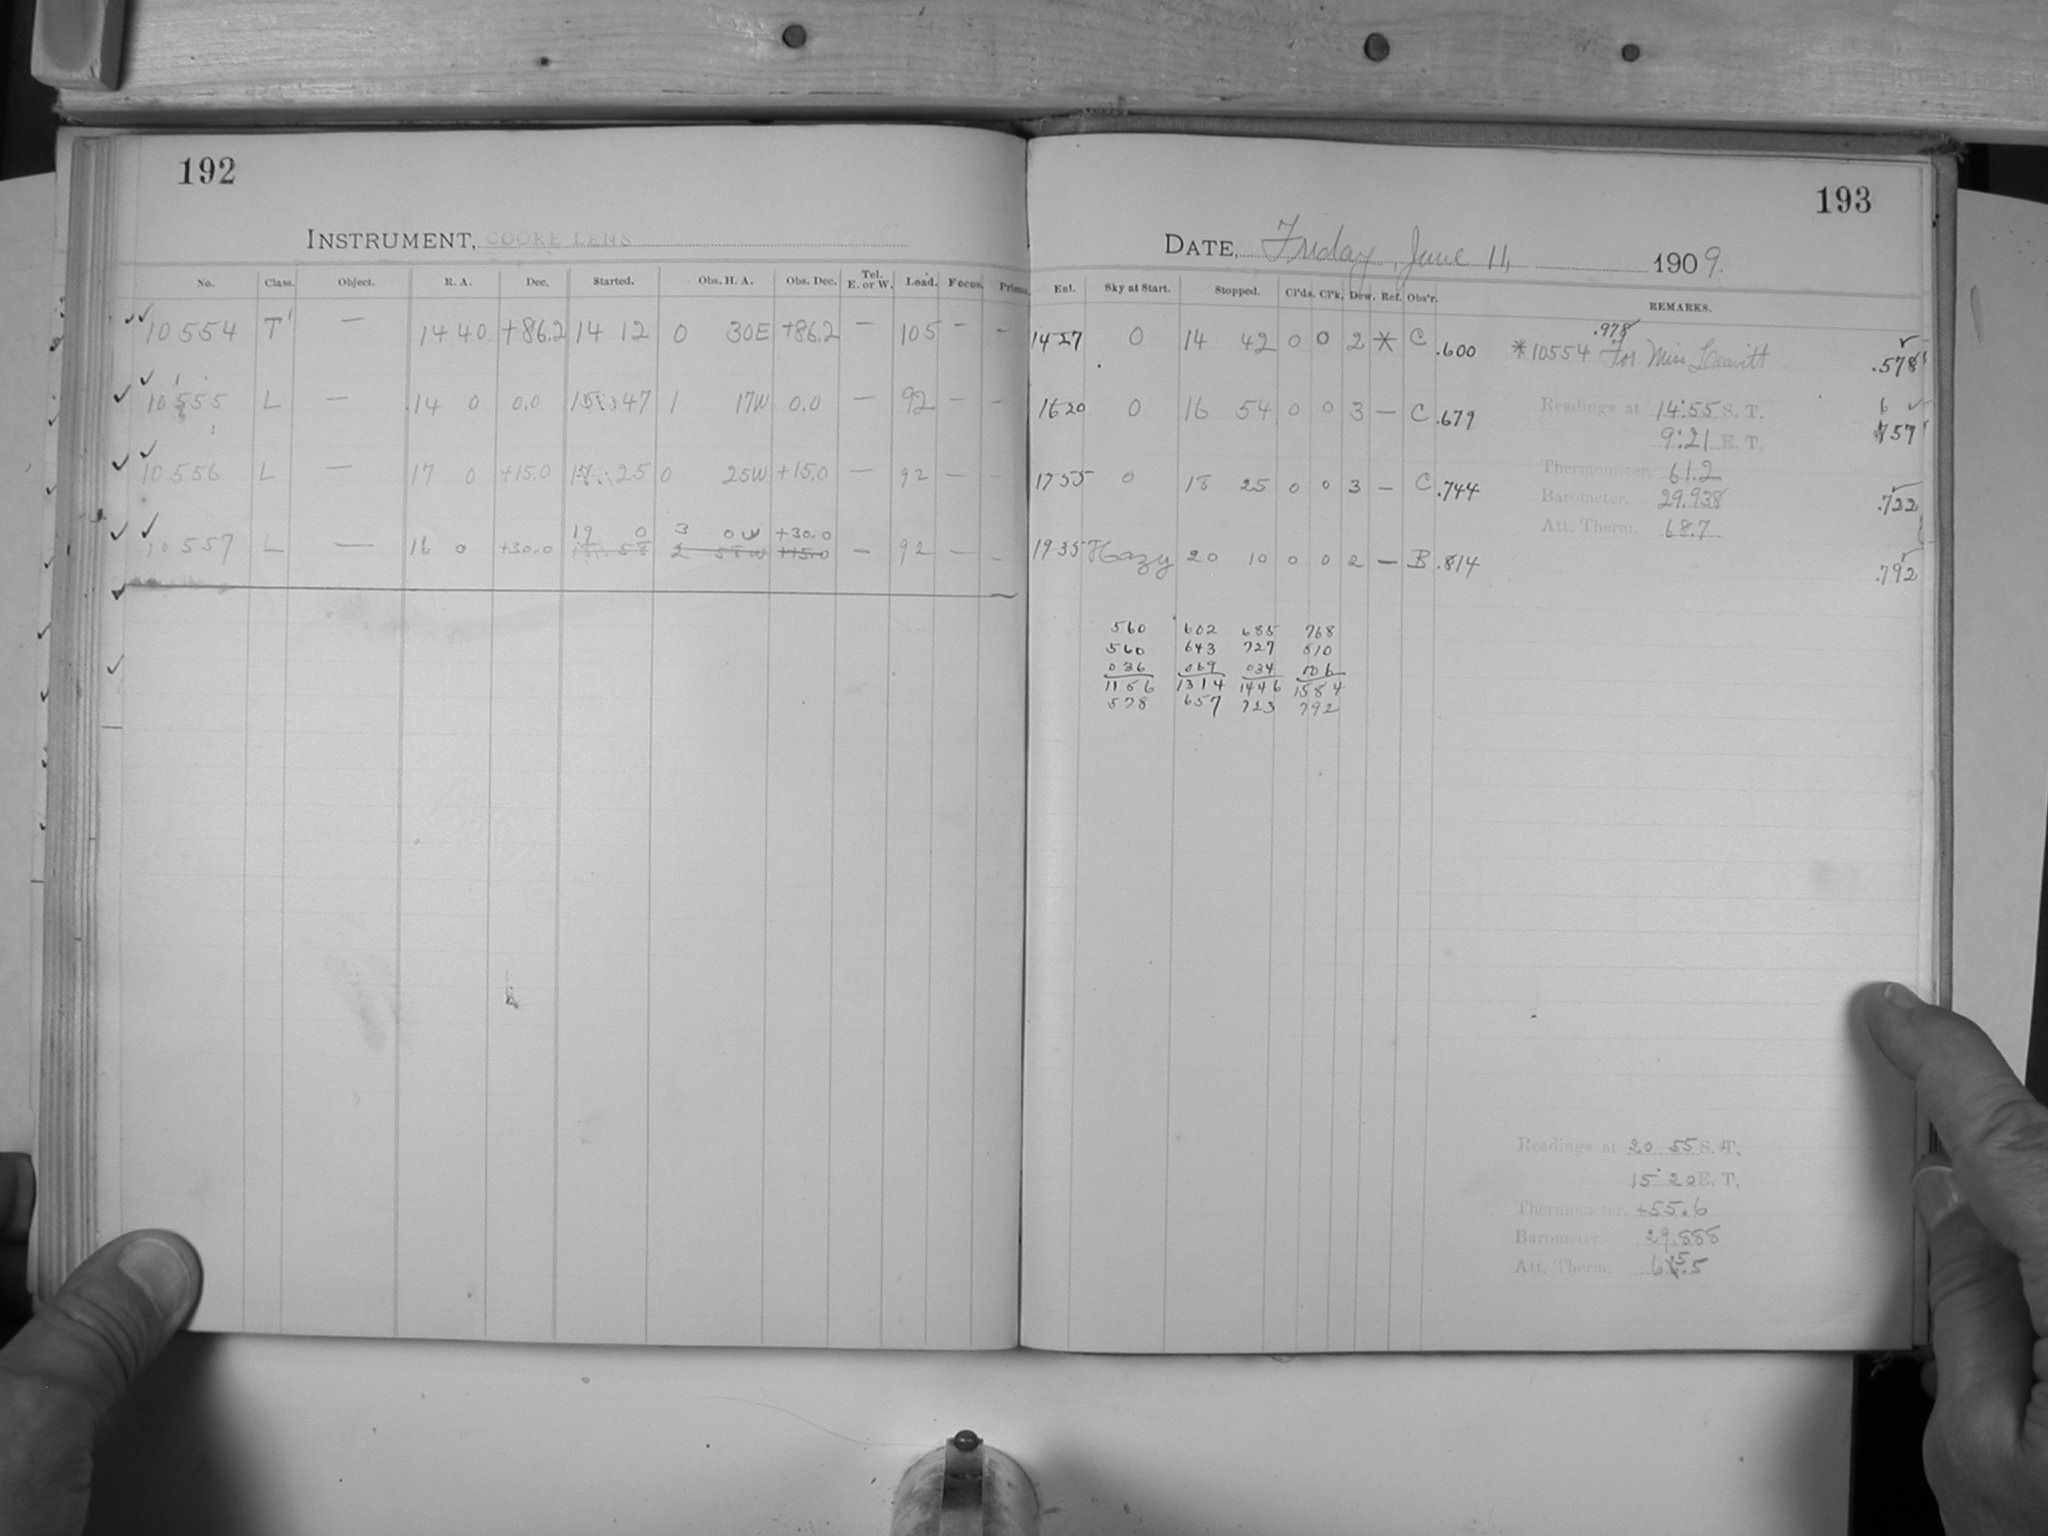 192
INSTRUMENT, COOKE LENS
No. Class. Object. R. A. Dec. Started. Obs. H. A. Obs. Dec. Tel. E. or W. Load. Focus. Prisms.
10554 T — 14 40 +86.2 14 12 0 30E +86.2 — 105 — —
10555 L — 14 0 0.0 15 47 1 17W 0.0 — 92 — —
10556 L — 17 0 +15.0 25 0 25W +15.0 — 92 — —
19 0 3 0W +30.0
10557 L — 16 0 +30.0 58 2 58W +15.0 — 92 — —
193
DATE, Friday, June 11, 1909.
Ent. Sky at Start. Stopped. Cl'ds. Cl'k. Dew. Ref. Obs'r. REMARKS.
.978
14 27 0 14 42 0 0 2 * C .600 *10554 For Miss Leavitt .578
16 20 0 16 54 0 0 3 — C .679 Readings at 14:55 S. T. 6
9:21 E. T. 757
17 55 0 18 25 0 0 3 — C .744 Thermometer, 61.2
Barometer, 29.938 .722
Att. Therm. 68.7
19 35 Hazy 20 10 0 0 2 — B .814 .792
560 602 685 768
560 643 727 810
036 069 034 006
1156 1314 1446 1584
578 657 723 792
Readings at 20 55 S. T.
15 20 E. T.
Thermometer, +55.6
Barometer, 29.888
Att. Therm.